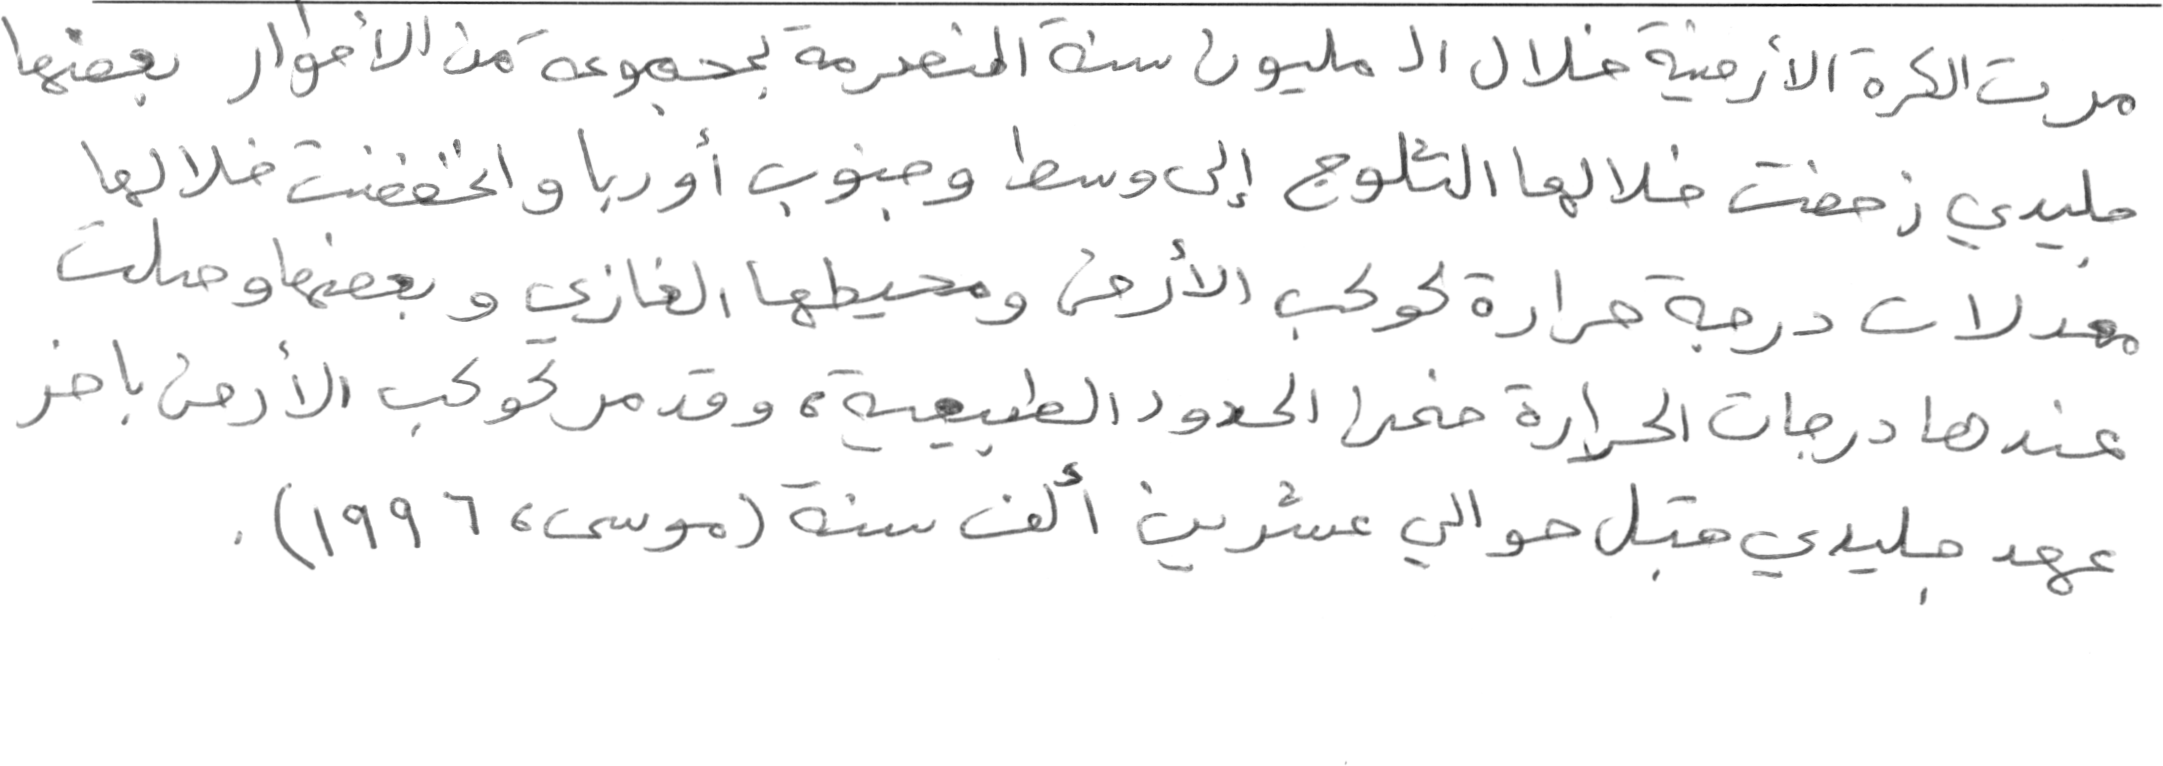 مرت الكرة الأرضية خلال الـ مليون سنة المنصرمة بمجموعة من الأطوار بعضها
جليدي زحفت خلالها الثلوج إلى وسط وجنوب أوربا وانخفضت خلالها
معدلات درجة حرارة كوكب الأرض ومحيطها الغازي وبعضها وصلت
عندها درجات الحرارة ضمن الحدود الطبيعية، وقد مر كوكب الأرض بآخر
عهد جليدي قبل حوالي عشرين ألف سنة (موسى، ١٩٩٦).